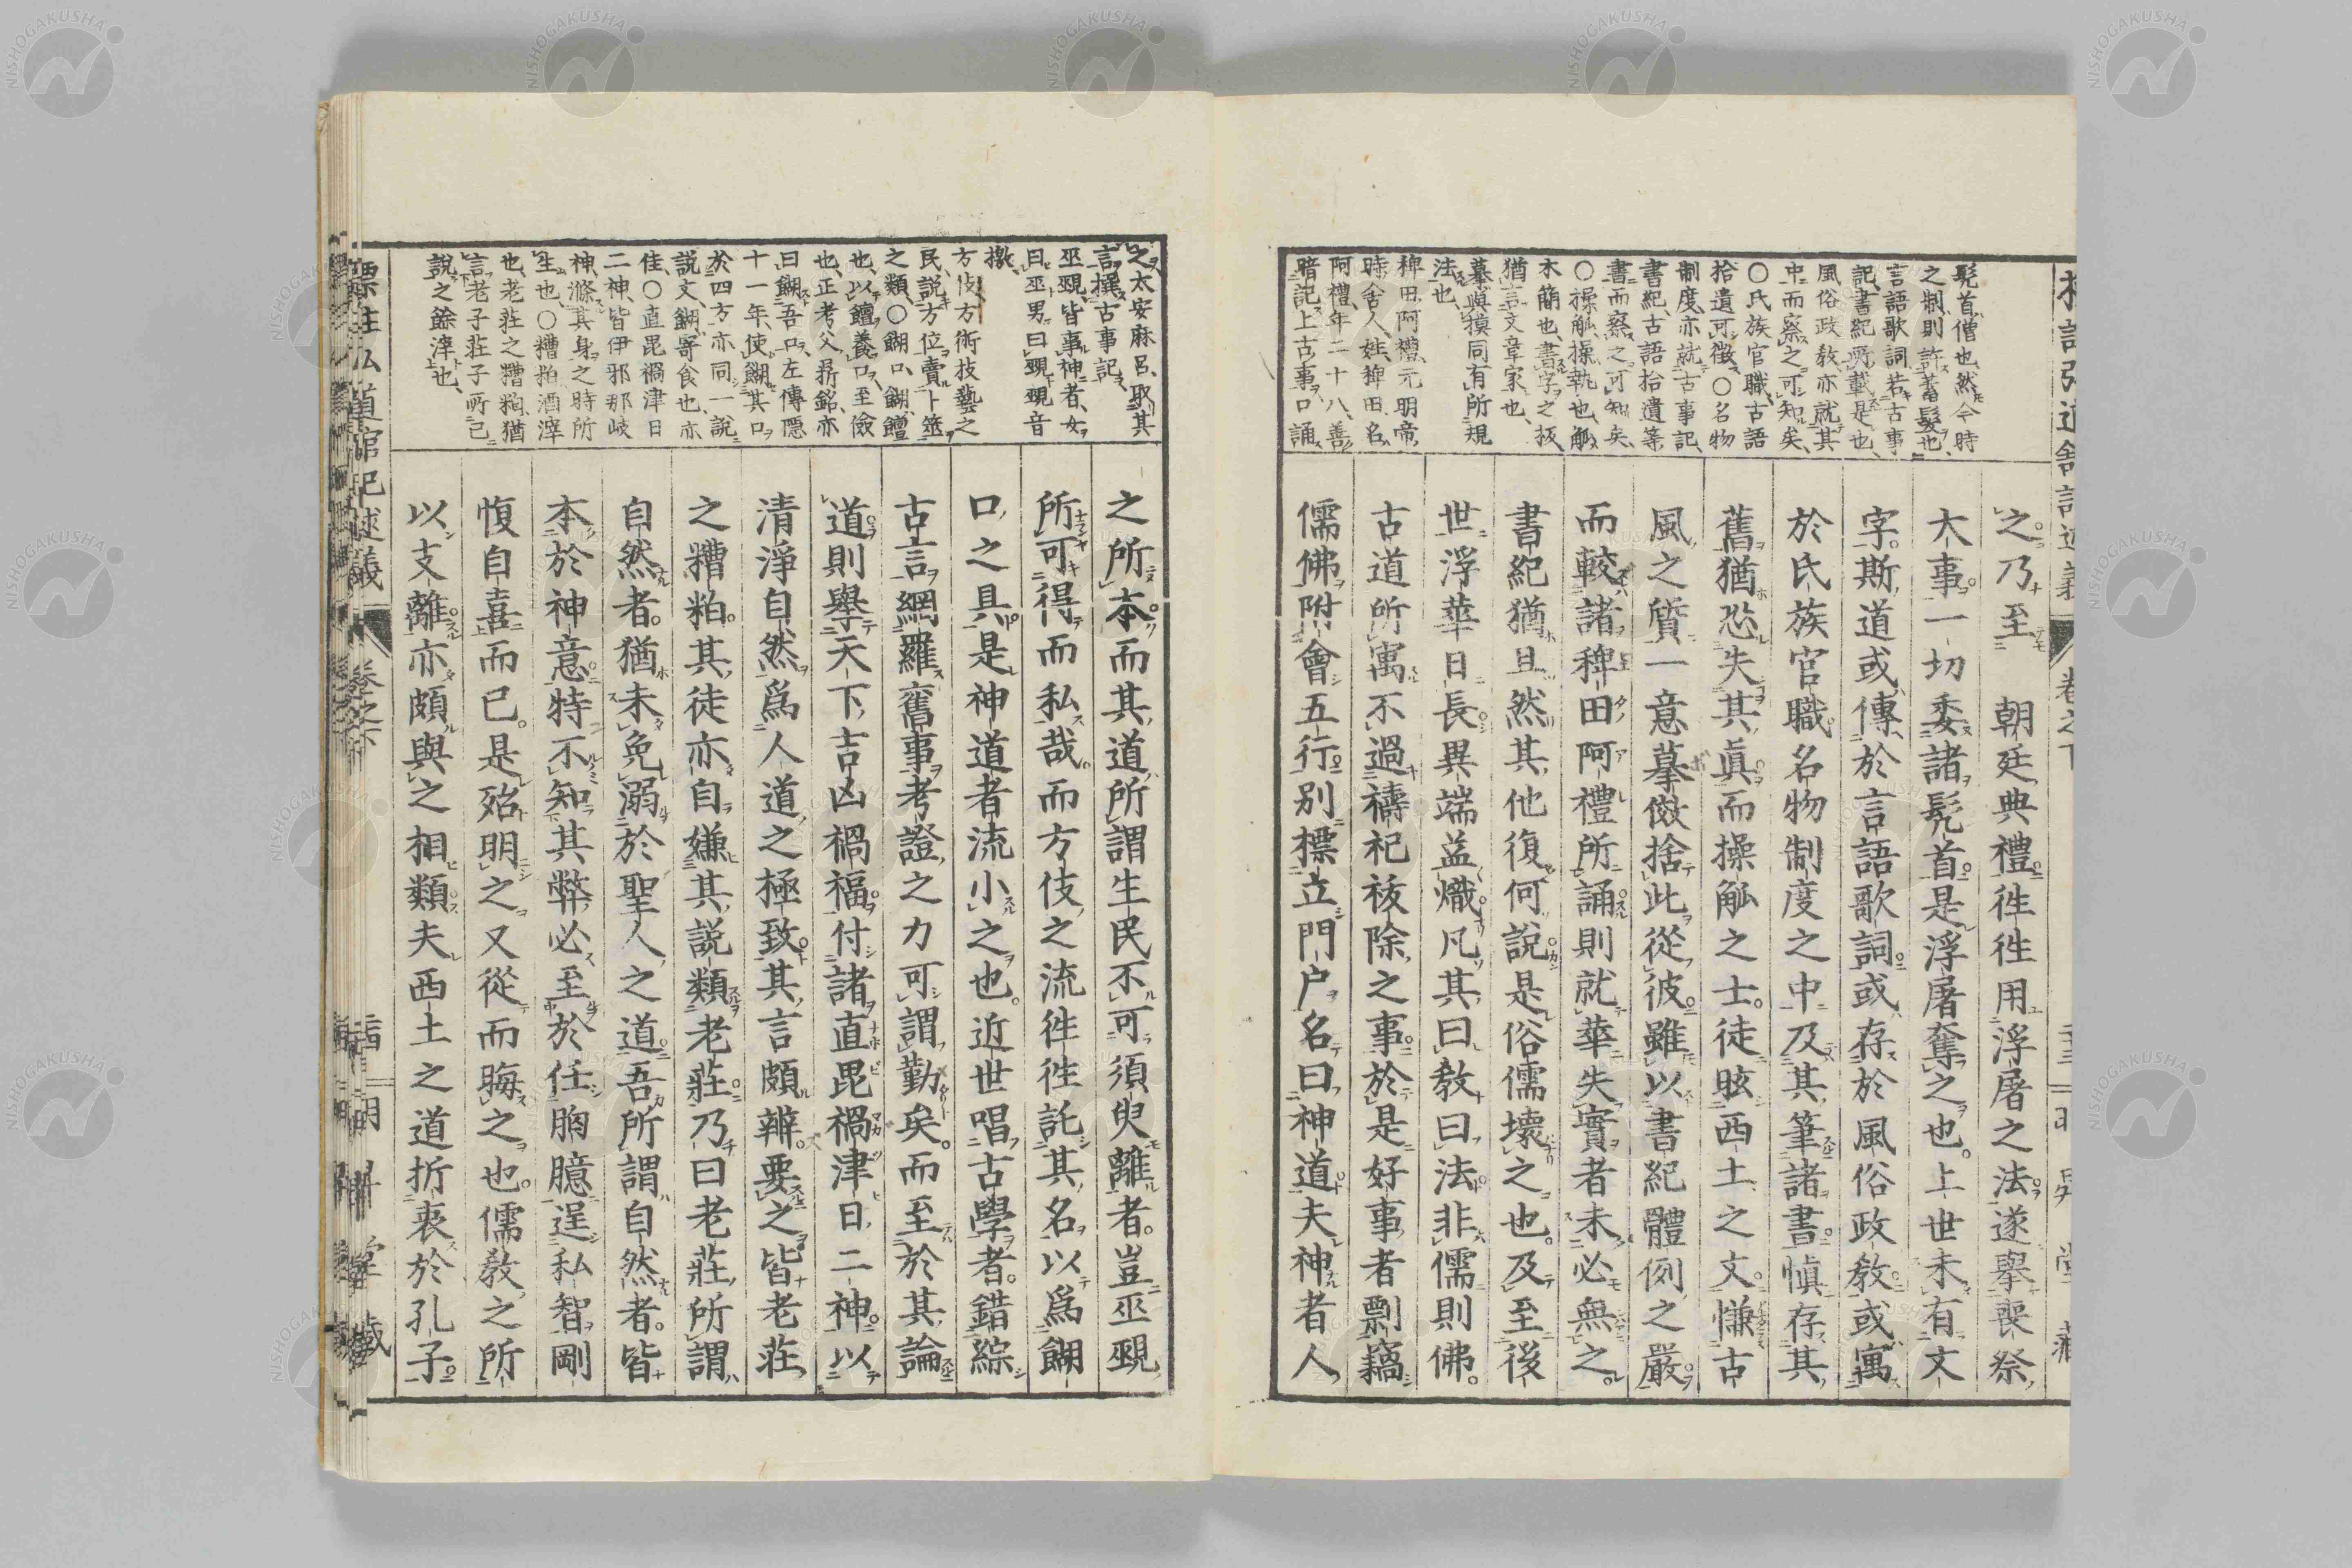 之乃至 朝廷典禮徃徃用浮屠之法遂擧喪祭
大事一切委諸髡首是浮屠奪之也。上世未有文
字。斯道或傳於言語歌詞或存於風俗政教或寓
於氏族官職名物制度之中及其筆諸書愼存其
舊猶恐失其眞而操觚之士。徒眩西土之文。慊古
風之質一意摹倣捨此從彼雖以書紀體例之嚴
而較諸稗田阿禮所誦則就華失實者未必無之。
書紀猶且然其他復何說是俗儒壞之也。及至後
世浮華日長異端益熾凡其曰教曰法非儒則佛。
古道所寓不過禱祀祓除之事於是好事者剽竊
儒佛附會五行別標立門戸名曰神道夫神者人
髡首、僧也、然今時
之制、則許蓄髮也、
言語歌詞、若古事
記、書紀所載是也、
風俗政教、亦就其
中而察之可知矣、
○氏族官職、古語
拾遺可徵、○名物
制度、亦就古事記、
書紀、古語拾遺等
書而察之可知矣、
○操觚、操、執也、觚、
木簡也、書字之板、
猶言文章家也、
摹與摸同、有所規
法也、
稗田阿禮、元明帝
時舍人、姓稗田、名
阿禮、年二十八、善
暗記上古事、口誦
之所本而其道所謂生民不可須臾離者。豈巫覡
所可得而私哉。而方伎之流徃徃託其名以爲餬
口之具。是神道者流小之也。近世唱古學者。錯綜
古言網羅舊事考證之力可謂勤矣。而至於其論
道則擧天下吉凶禍福付諸直毘禍津日二神。以
清淨自然爲人道之極致其言頗辨。要之皆老莊
之糟粕。其徒亦自嫌其説類老莊。乃曰老莊所謂
自然者。猶未免溺於聖人之道吾所謂自然者。皆
本於神意特不知其弊必至於任胸臆逞私智剛
愎自喜而已。是殆明之又從而晦之也。儒教之所
以支離亦頗與之相類夫西土之道折衷於孔子
之、太安麻呂、取其
言、撰古事記、
巫覡、皆事神者、女
曰巫、男曰覡、覡音
檄、
方伎、方術技藝之
民、説方位、賣卜筮
之類、○餬口、餬、饘
也、以饘養口、至儉
也、正考父鼎銘、亦
曰、餬吾口、左傳隱
十一年、使餬其口
於四方、亦同、一説
説文、餬、寄食也、亦
佳、○直毘禍津日
二神、皆伊邪那岐
神、滌其身之時所
生也、○糟粕、酒滓
也、老莊之糟粕、猶
言老子莊子所已
說之餘滓也、
標註弘道館記述義 卷之下